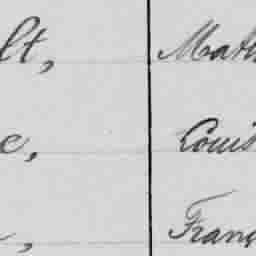 lt, Math
e, Louis
, Franç